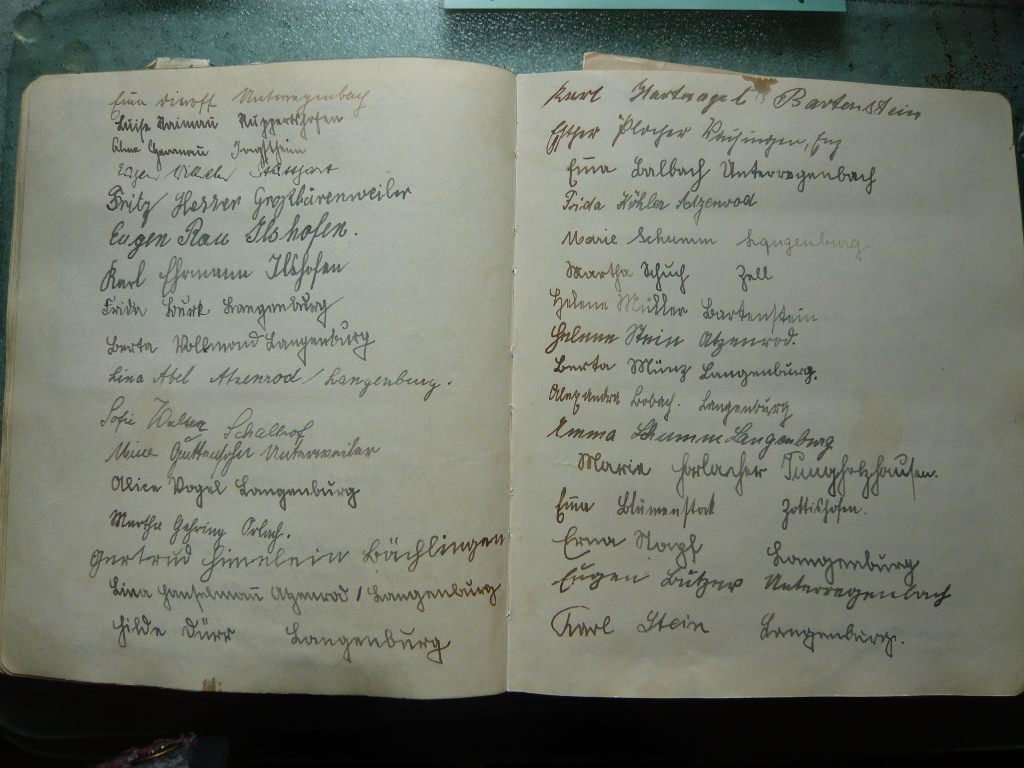 Emma Unterregenbach
Luise Naimann Ruppertshofen
Alma Jagstheim
Stuttgart
Fritz Hesser Großbärenweiler
Eugen Rau Ilshofen.
Karl Ehrmann Ilshofen
Frida Burk Langenburg
Berta Vollmond Langenburg
Lina Abel Atzenrod / Langenburg.
Sofie Walter Schalhof
Mina Guttensohn Unterweiler
Alice Vogel Langenburg
Martha Gehring Orlach.
Gertrud Himelein Bächlingen
Lina Hanselmann Atzenrod / Langenburg
Hilde Dürr Langenburg
Karl Hartnagel Bartenstein
Esther Plocher Vaihingen, Enz.
Emma Balbach Unterregenbach
Frida Köhler Atzenrod
Marie Schumm Langenburg
Martha Schuch Zell
Helene Müller Bartenstein
Helene Stein Atzenrod.
Berta Münz Langenburg.
Alexandra Bobach. Langenburg
Emma Schumm Langenburg
Marie Horlacher Jungholzhausen.
Emma Blümenstok Zottishofen.
Erna Napf Langenburg
Eugen Butzer Unterregenbach
Karl Stein Langenburg.